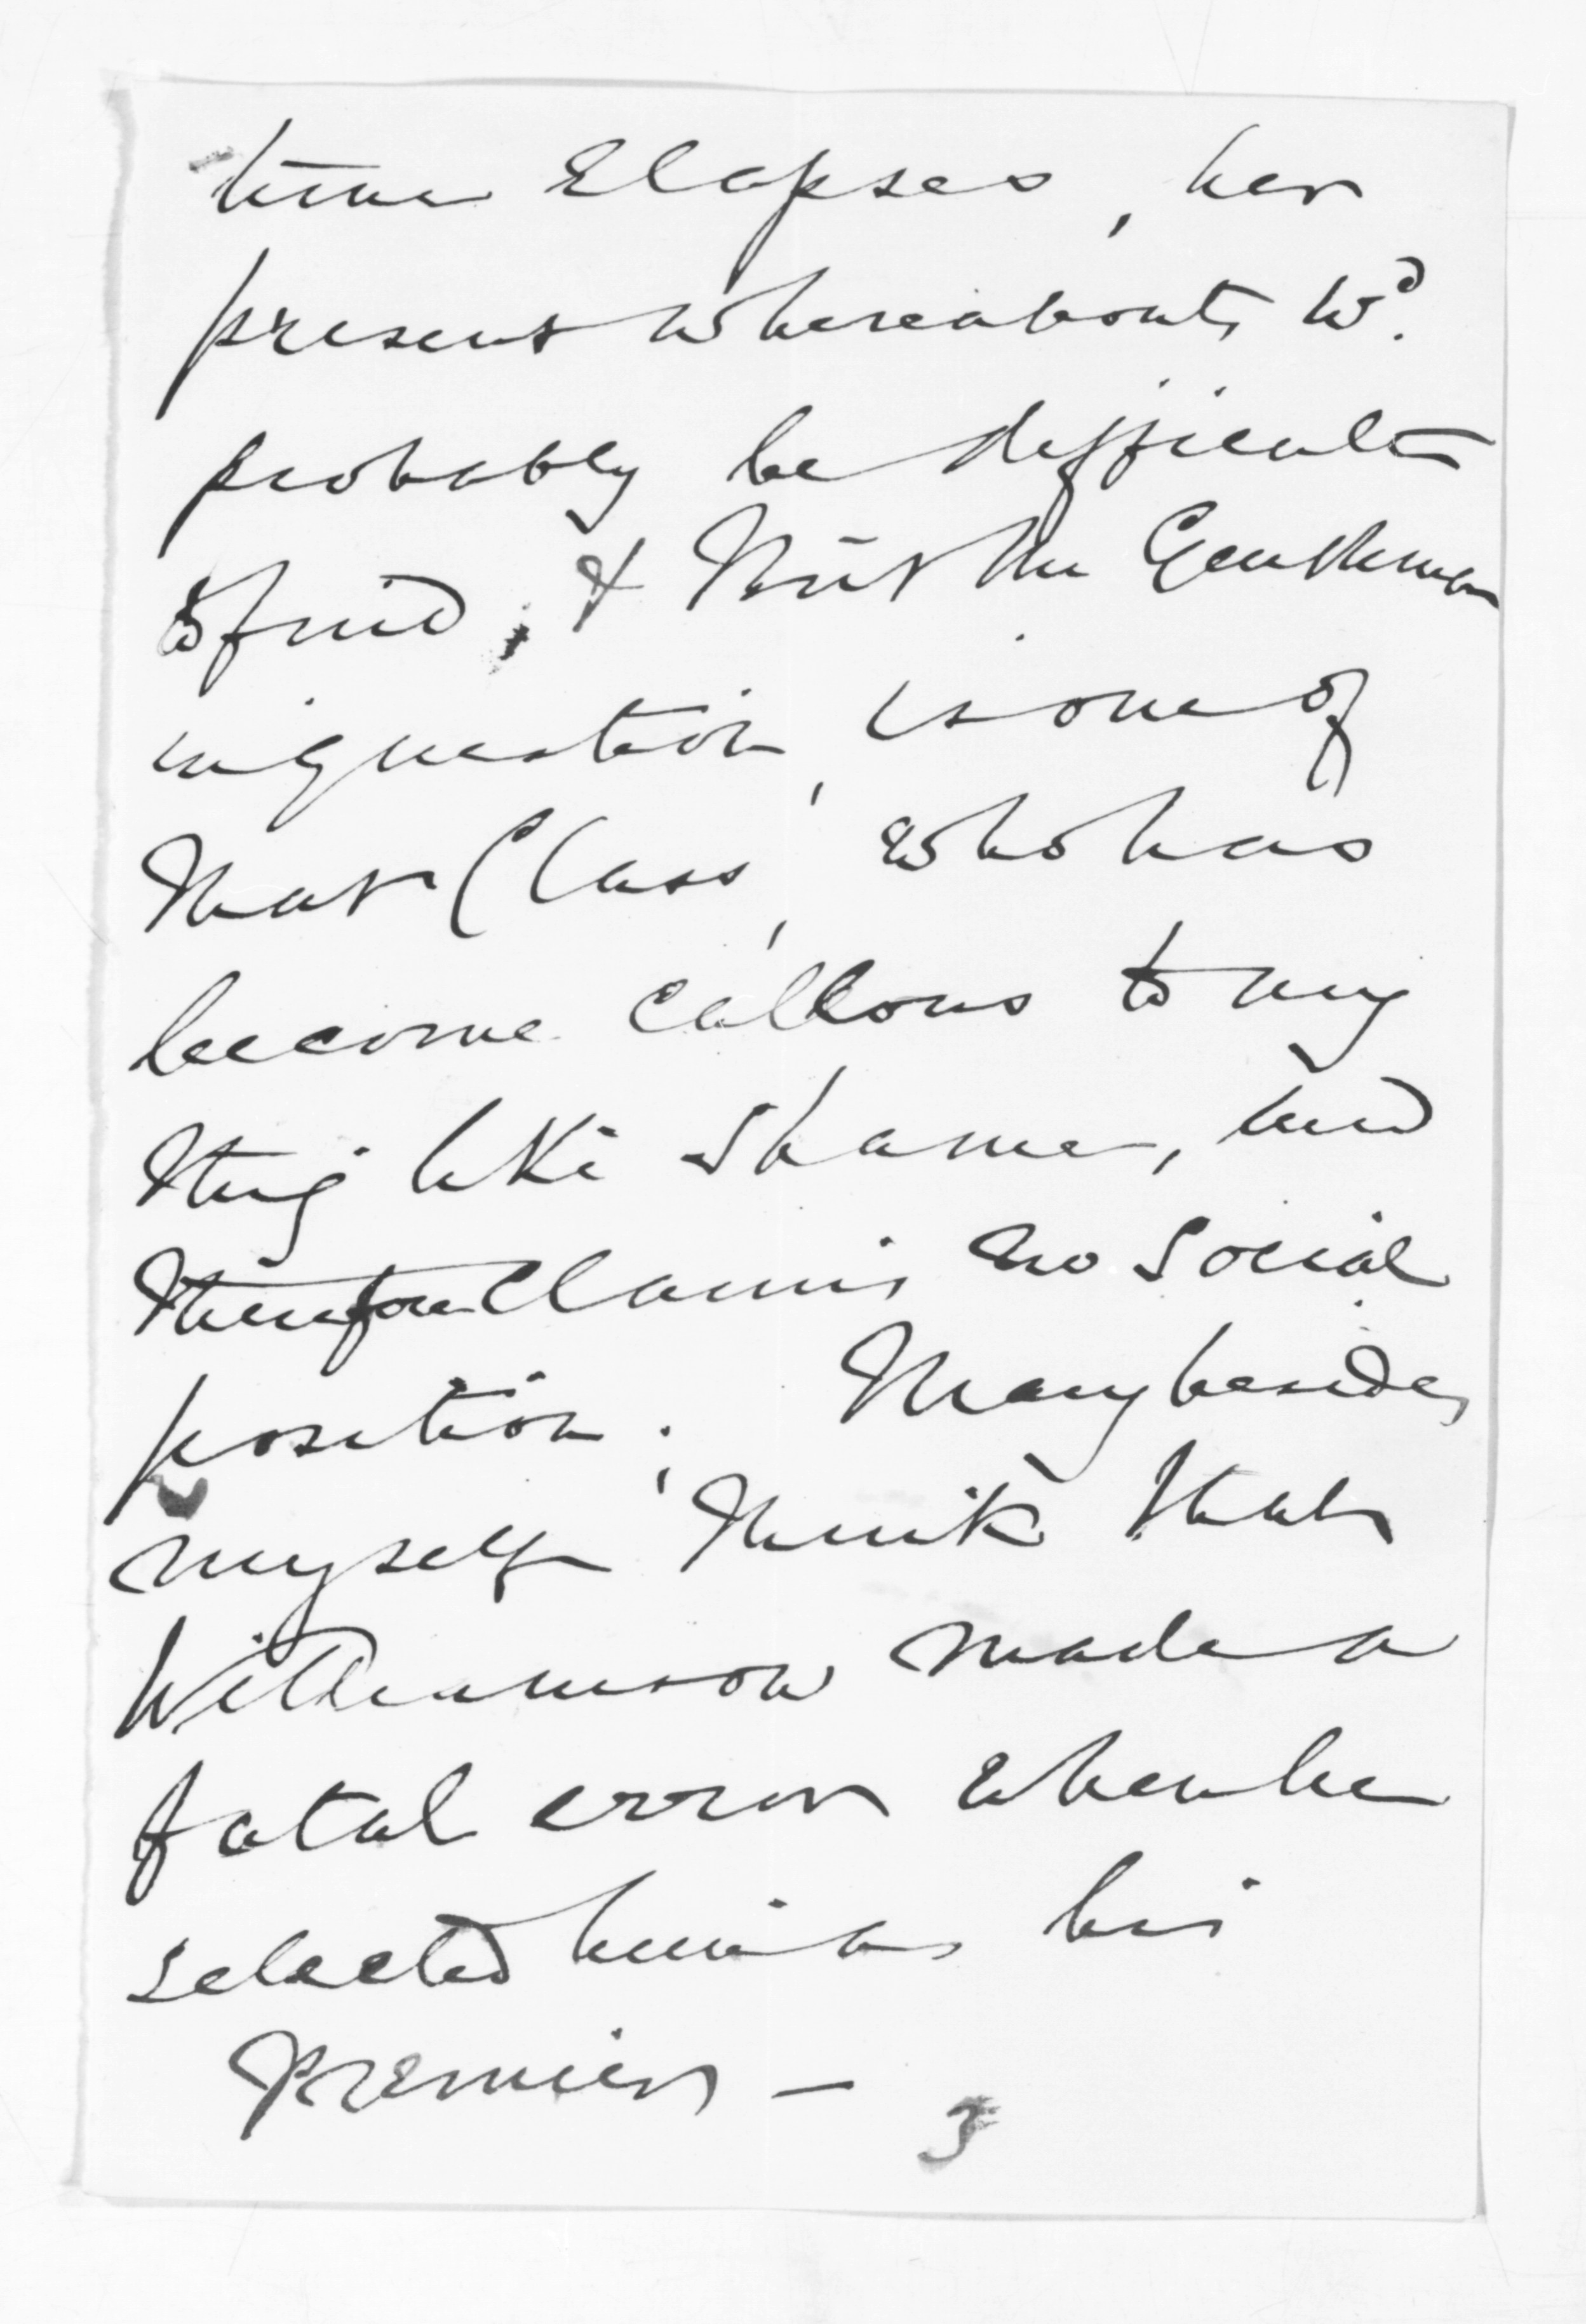 time Elapses, her
present whereabouts wd.
probably be difficult
to find, & that the Gentleman
in question, is one of
that Class, who has
become callous to any
thing like Shame, and
therefore claims no Social
position; Many besides
myself think that
Williamson made a
fatal error when he
selected him as his
Premier —
3